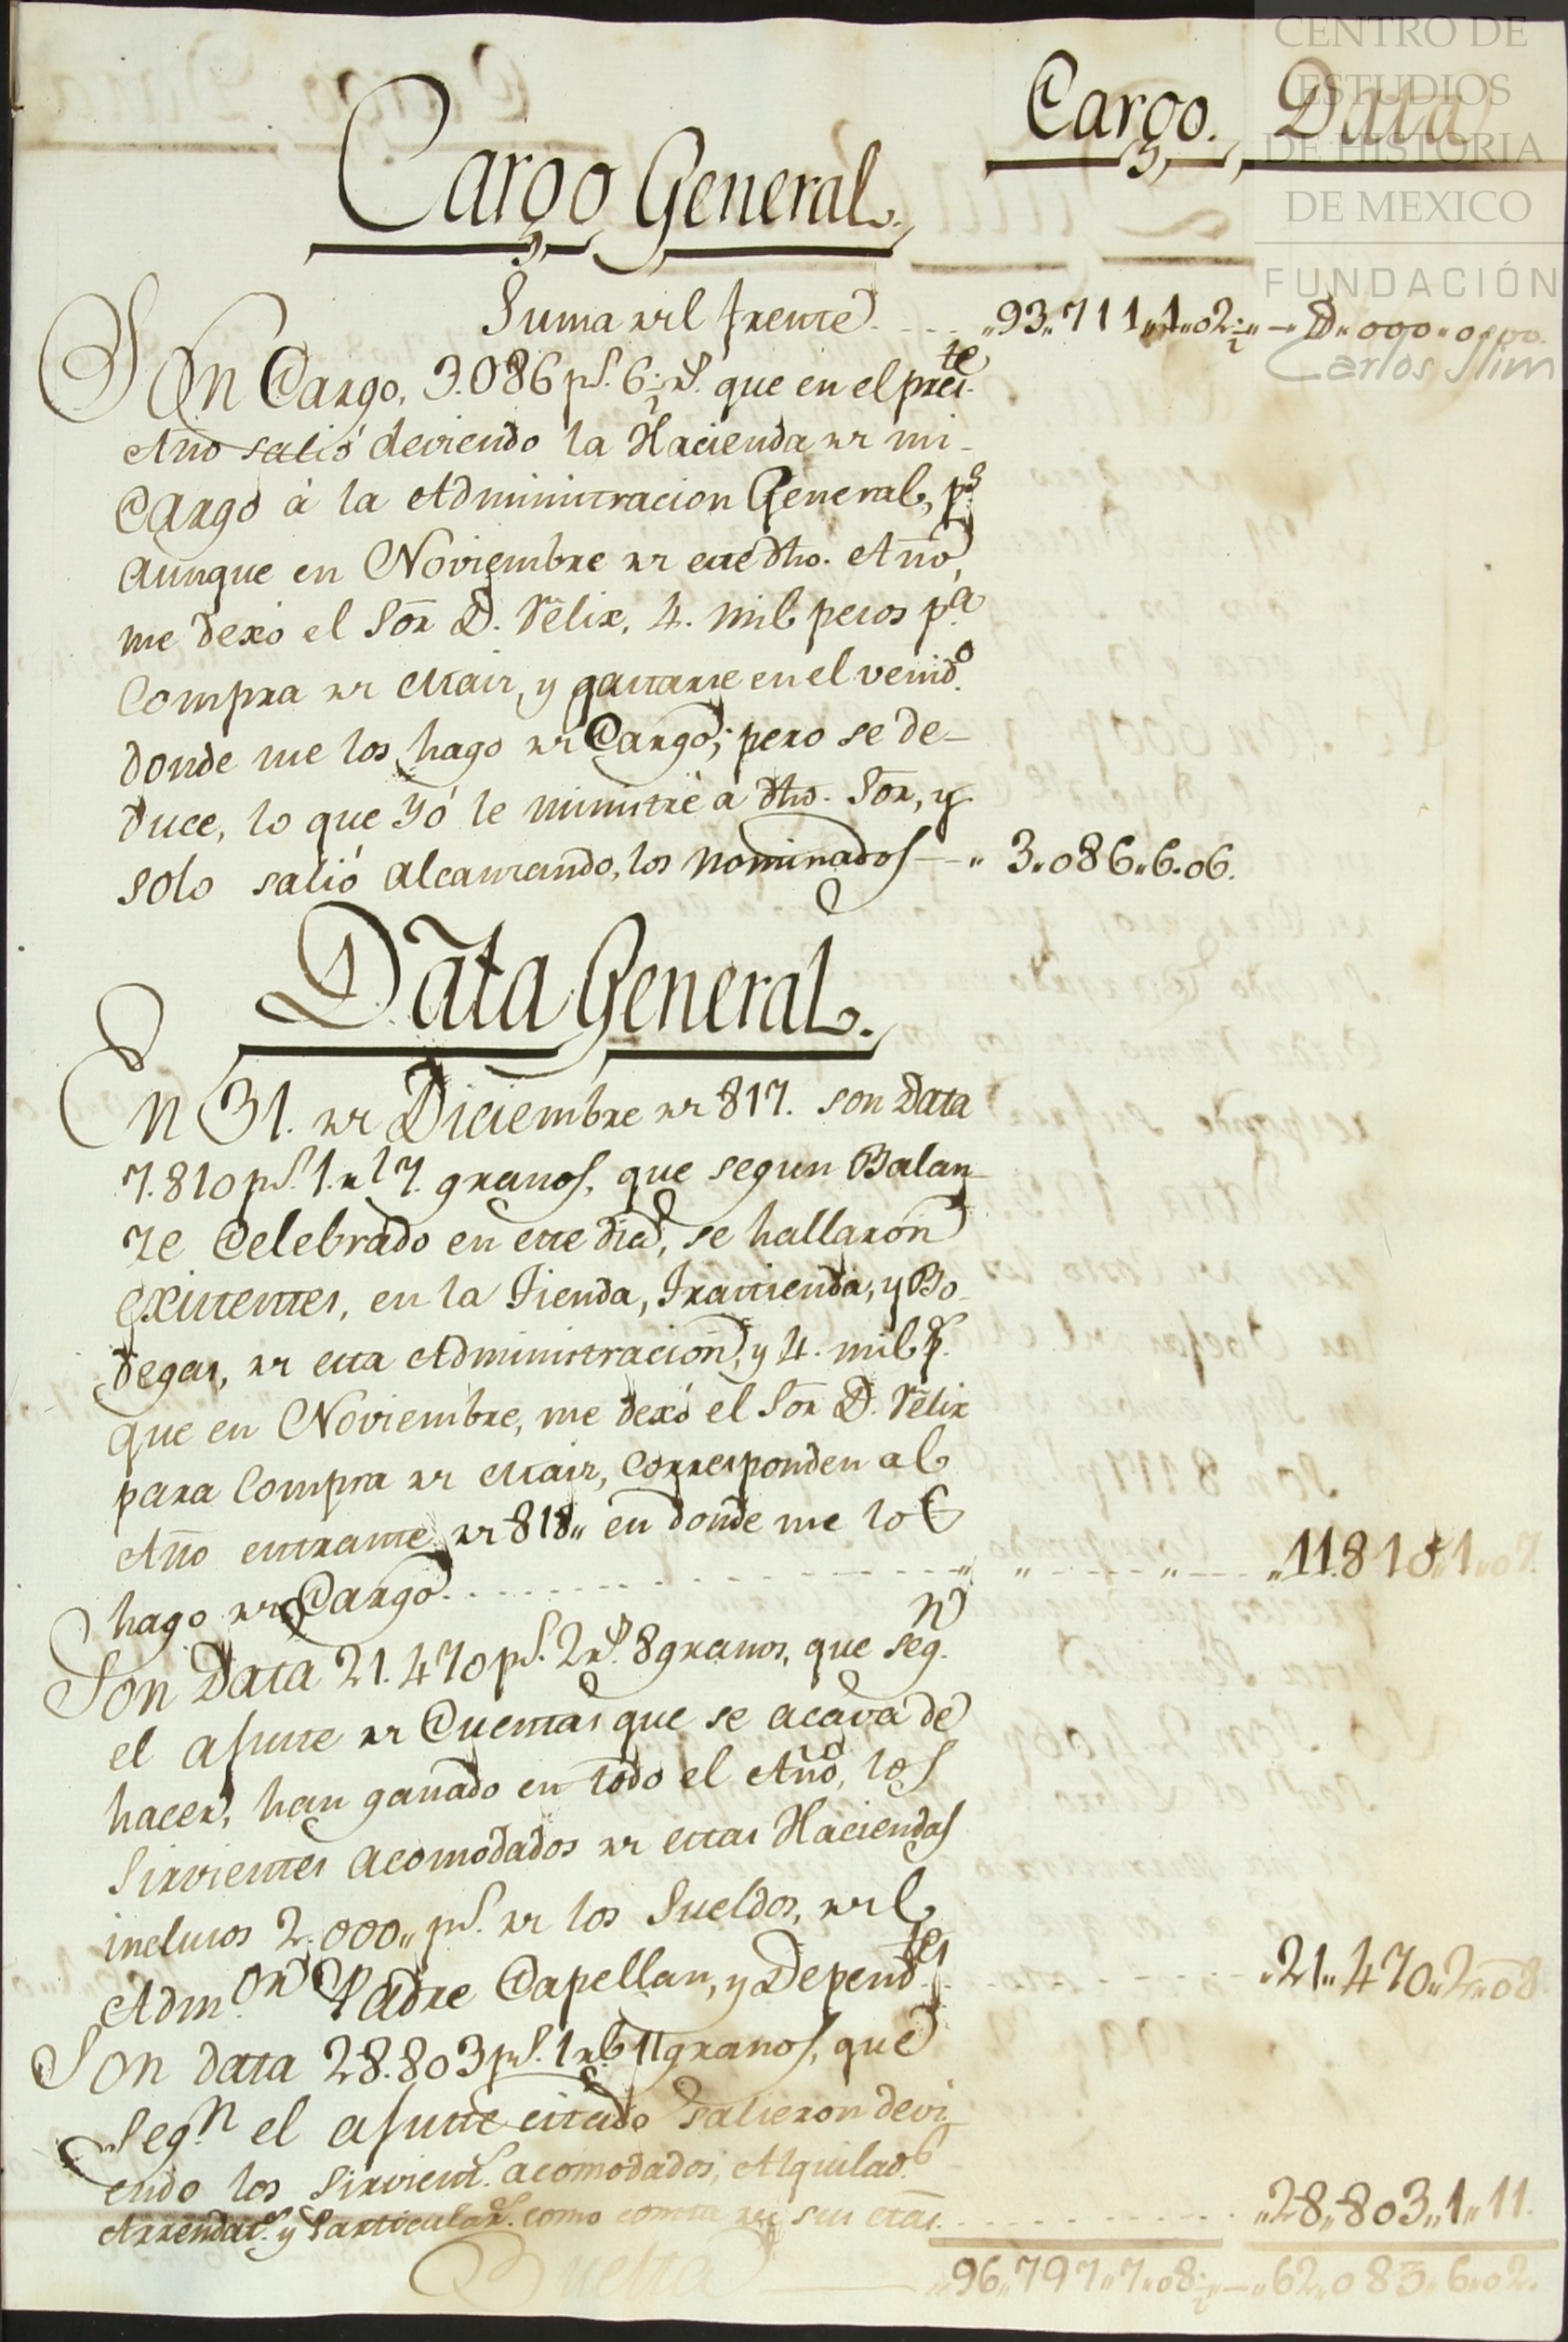 CENTRO DE
ESTUDIOS
DE HISTORIA
DE MEXICO
FUNDACIÓN
Carlos Slim
Cargo. Data
Cargo General.
Suma del frente „93„711„1„02½„ — D„000„0„00.
Son Cargo, 3.086 ps. 6½ rs. que en el prete.
Año salió deviendo la Hacienda de mi
Cargo á la Administracion General, ps.
aunque en Noviembre de este dho. Año,
me dexó el Sōr D. Félix, 4. mil pesos pa.
compra de Maiz, y gastarse en el venido.
donde me los hago de Cargo; pero se de-
duce, lo que Yó le ministré á dho. Sōr, y
solo salió alcanzando, los nominados — „ 3„086„6.06.
Data General.
En 31. de Diciembre de 817. son Data
7.810 ps. 1. rl 7. granos, que segun Balan-
ze Celebrado en este dia, se hallaron
existentes, en la Tienda, Trastienda, y Bo-
degas, de esta Administracion, y 4. mil ps.
que en Noviembre, me dexó el Sōr D. Félix
para Compra de Maiz, corresponden al
Año entrante de 818„ en donde me los
hago de Cargo. „ „ „ „11.810„1„07.
Son Data 21.470 ps. 2 rs. 8 granos, que segn.
el ajuste de Cuentas que se acava de
hacer, han ganado en todo el Año, los
Sirvientes acomodados de estas Haciendas
inclusos 2.000„ ps. de los Sueldos, del
Admor. Padre Capellan, y Dependtes. „21„470„2„08.
Son data 28.803 ps. 1 rl. 11 granos, que
Segn. el ajuste citado salieron devi-
endo los sirvients. acomodados, Alquilados.
Arrendats. y Particulars. como consta de sus ctas. „28„803„1„11.
Vuelta „96„797„7„08½„ — „62„083„6„02.